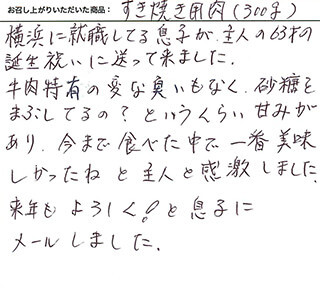 お召し上がりいただいた商品： すき焼き用肉(300g)
横浜に就職してる息子が、主人の63才の
誕生祝いに送って来ました。
牛肉特有の変な臭いもなく、砂糖を
まぶしてるの？というくらい甘みが
あり、今まで食べた中で一番美味
しかったねと主人と感激しました。
来年もよろしく！と息子に
メールしました。